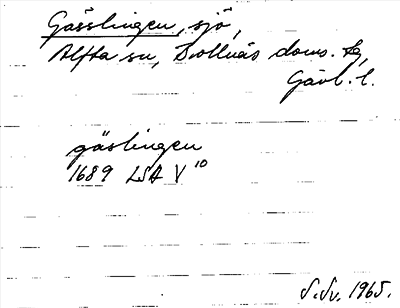 Gässlingen, sjö,
Alfta sn, Bollnäs doms. tg,
Gävl. l.
gäslingen
1689 LSA V 10
S. Sv. 1965.